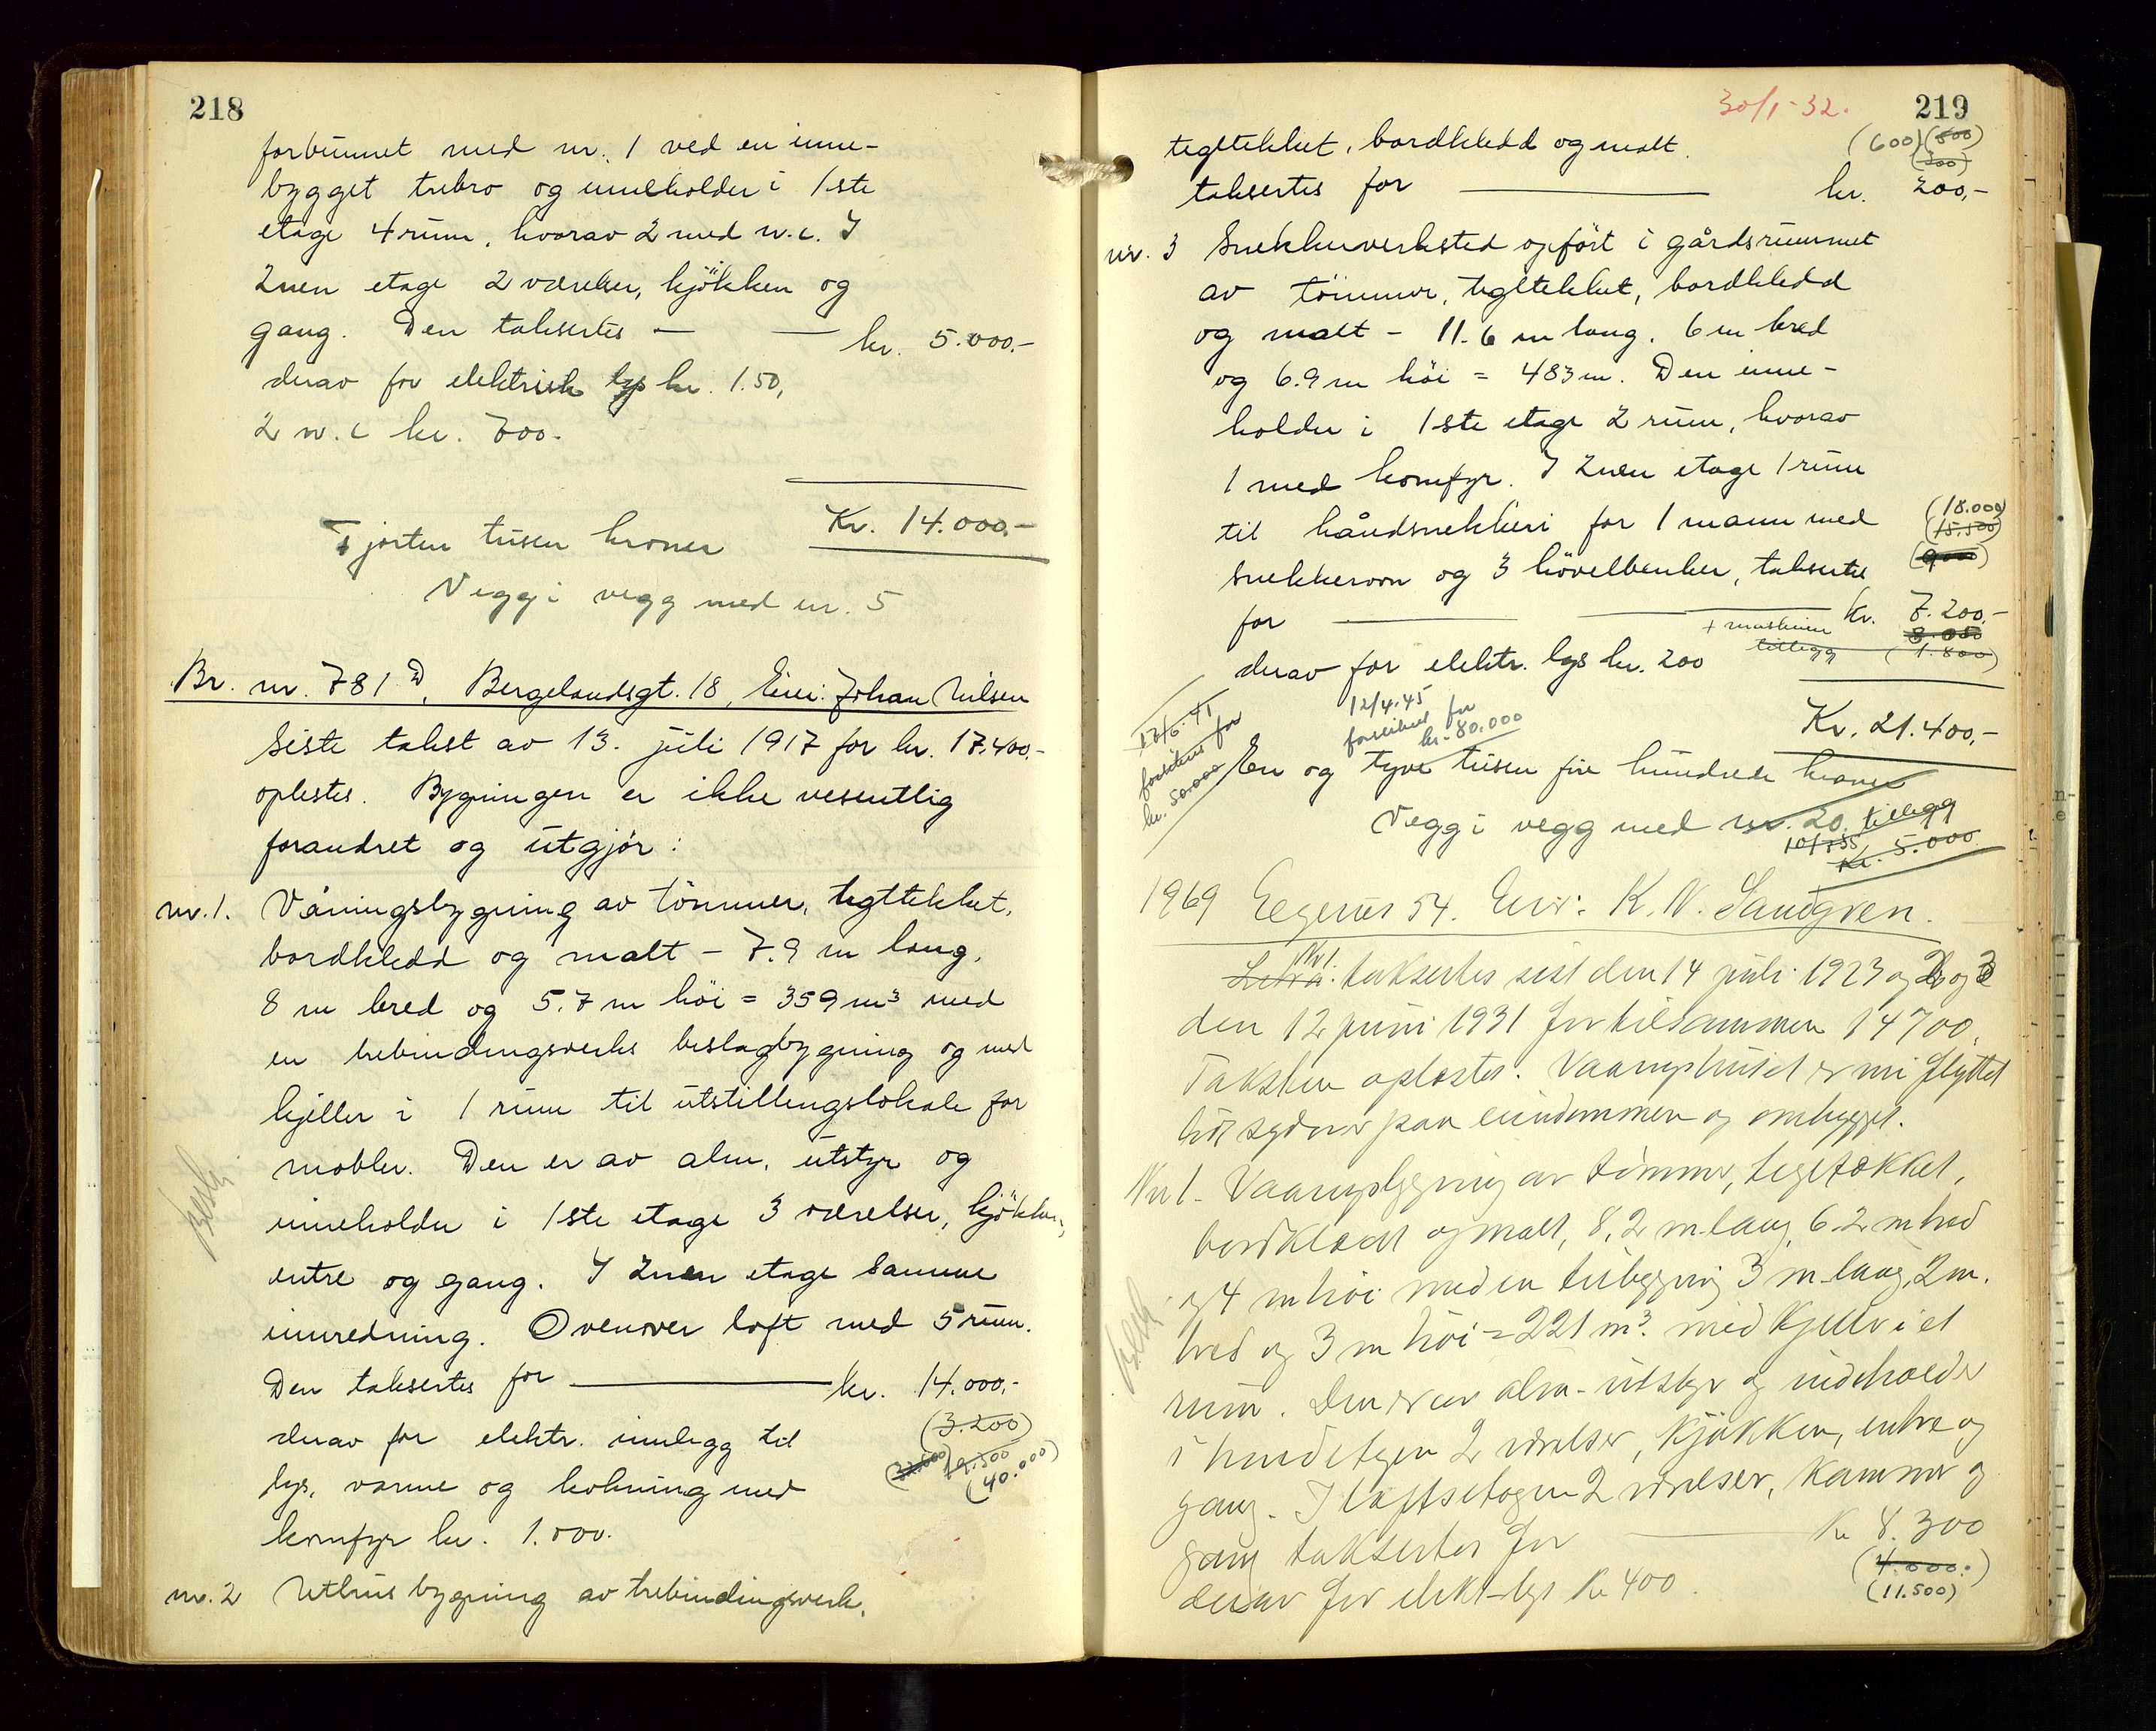 218
forbunnet med nr. 1 ved en inne-
bygget trebro og inneholder i 1ste
etage 4 rum, hvorav 2 med w.c. I
2nen etage 2 værelser, kjökken og
gang. Den taksertes — — kr. 5.000.-
derav for elektrisk lys kr. 1.50,
2 w.c kr. 700.-
Kr. 14.000.-
Fjorten tusen kroner
Vegg i vegg med nr. 5
Br. nr. 781 D, Bergelandsgt. 18, Eier: Johan Nilsen
Siste takst av 13. juli 1917 for kr. 17.400.-
oplestes. Bygningen er ikke vesentlig
forandret og utgjør:
nr. 1. Våningsbygning av tömmer, tegltekket,
bordkledd og malt - 7.9 m lang,
8 m bred og 5.7 m höi = 359 m³ med
en trebindingsverks beslagbygning og med
kjeller i 1 rum til utstillingslokale for
mobler. Den er av alm. utstyr og
inneholder i 1ste etage 3 værelser, kjökken,
entre og gang. I 2nen etage samme
innredning. Ovenover loft med 5 rum.
Den taksertes for — kr. 14.000,-
(3.200)
derav for elektr. innlegg til
lys, varme og kokning med
(40.000)
komfyr kr. 1.000.
nr. 2 Uthusbygning av trebindingsverk,
30/1-32.
219
tegltekket, bordkledd og malt (600) (500)
(300)
taksertes for — kr. 200,-
nr. 3 Snekkerverksted opfört i gårdsrummet
av tömmer, tegltekket, bordkledd
og malt - 11.6 m lang. 6 m bred
og 6.9 m höi = 483 m. Den inne-
holder i 1ste etage 2 rum, hvorav
1 med komfyr. I 2nen etage 1 rum
(18.000)
til håndsnekkeri for 1 mann med (15.500)
snekkerovn og 3 hövelbenker, taksertes (9000)
for — Kr. 7.200.-
+ maskiner
tillegg (1.800)
derav for elektr. lys kr. 200
Kr. 21.400,-
12/4.45
forsikret for
kr. 80.000
forsikres for
kr. 50.000
En og tyve tusen fire hundrede kroner
Vegg i vegg med nr. 20. tillegg
Kr. 5.000
1969 Egenes 54. Eier: K. N. Sandgren.
Nr 1.
Litra a. taksertes sist den 14 juli 1923 og 2 og 3
den 12 juni 1931 for tilsammen 14700.
Taksten oplæstes. Vaaningshuset er nu flyttet
paa eiendommen og ombygget.
Nr 1. Vaaningsbygning av tömmer, teglstækket,
bordklædt og malt, 8,2 m. lang, 6.2 m bred
og 4 m höi med en tilbygning 3 m. lang, 2 m.
bred og 3 m höi = 221 m³. med kjeller i et
rum. Den er av alm. utstyr og indeholder
i hovedetagen 2 værelser, kjökken, entre og
gang. I loftsetagen 2 værelser, kammer og
gang taksertes for — Kr 8.300
(4.000.)
derav for elekt. lys Kr 400. (11.500)